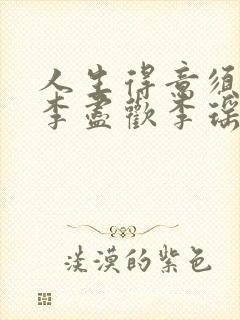 人生得意须
李尽欢李瑶
淡漠的紫色